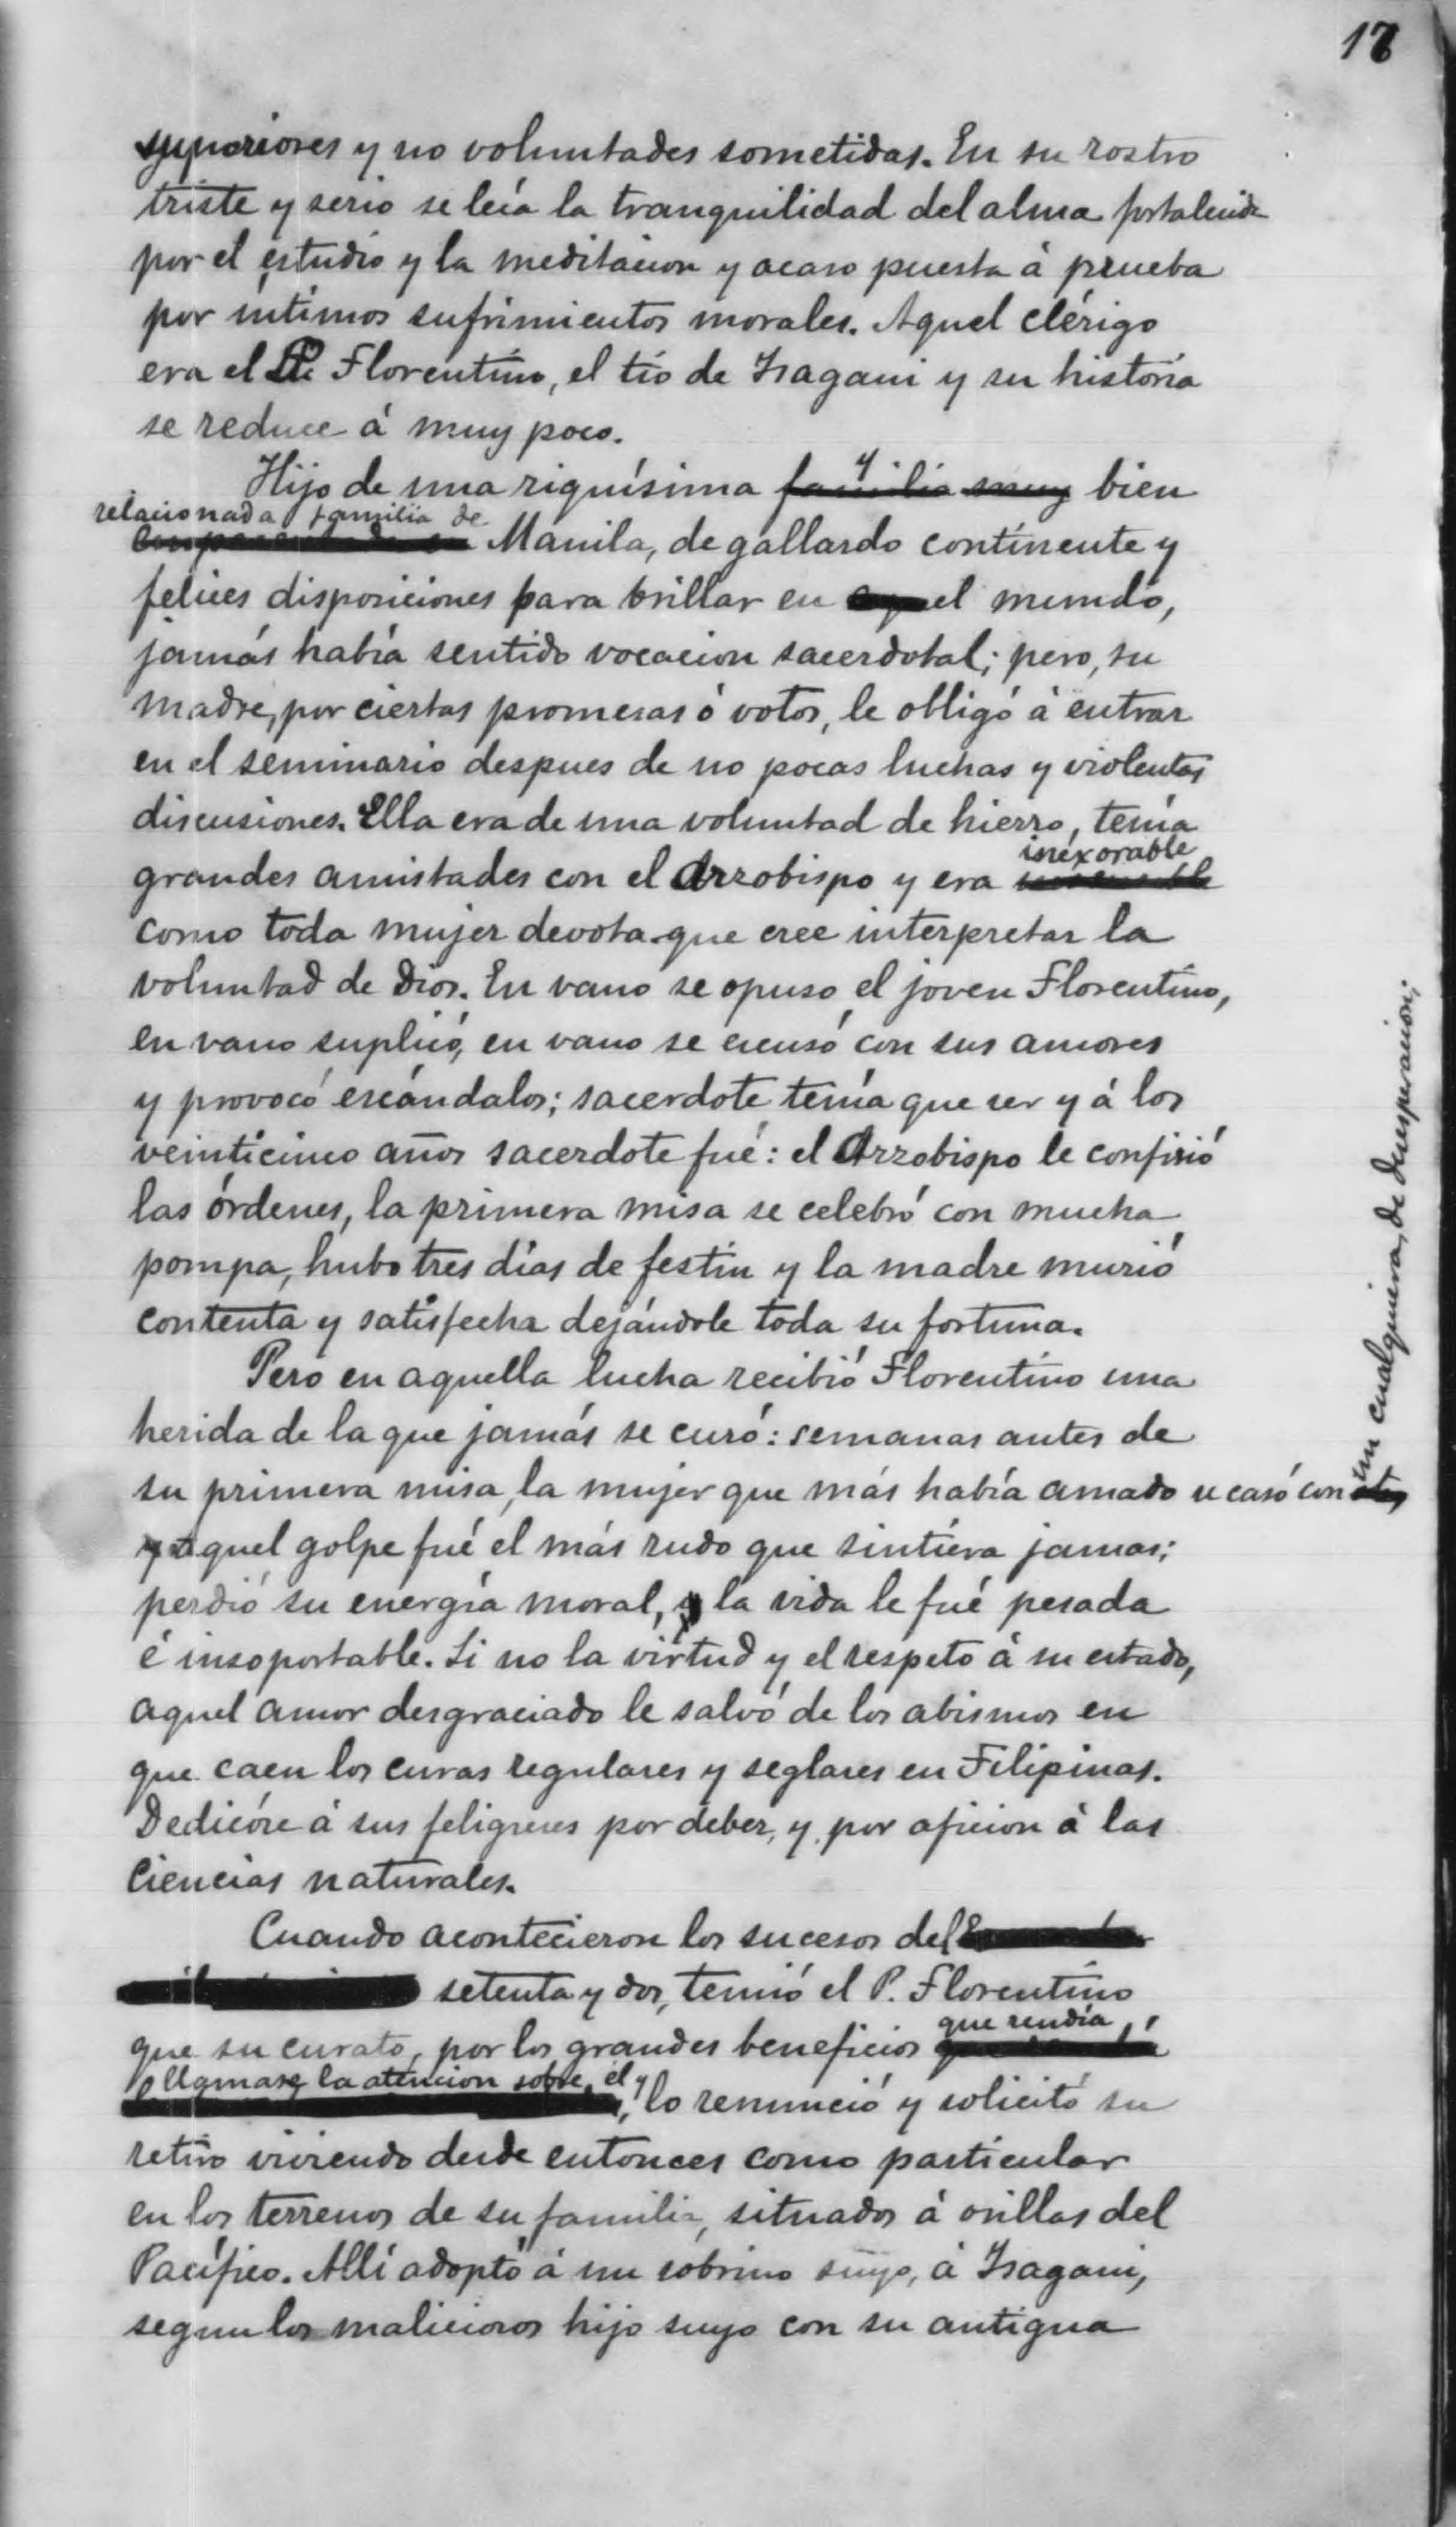 17
superiores y no voluntades sometidas. En su rostro
triste y serio se leía la tranquilidad del alma fortalecida
por el estudio y la meditacion y acaso puesta á prueba
por intimos sufrimientos morales. Aquel clérigo
era el P. Florentino, el tío de Isagani y su historia
se reduce á muy poco.
Hijo de una riquísima familia muy y bien
relacionada familia de
Manila, de gallardo continente y
felices disposiciones para brillar en el mundo,
jamás había sentido vocacion sacerdotal; pero, su
madre, por ciertas promesas ó votos, le obligó á entrar
en el seminario despues de no pocas luchas y violentas
discusiones. Ella era de una voluntad de hierro, tenía
inexorable
grandes amistades con el Arzobispo y era
como toda mujer devota que cree interpretar la
voluntad de Dios. En vano se opuso el joven Florentino,
en vano suplicó, en vano se escusó con sus amores
y provocó escándalos; sacerdote tenía que ser y á los
veinticinco años sacerdote fué: el Arzobispo le confirió
las órdenes, la primera misa se celebró con mucha
pompa, hubo tres días de festin y la madre murió
contenta y satisfecha dejándole toda su fortuna.
Pero en aquella lucha recibió Florentino una
herida de la que jamás se curó: semanas antes de
su primera misa, la mujer que más había amado se casó con
un cualquiera, de desesperacion;
aquel golpe fué el más rudo que sintiera jamas;
perdió su energía moral, la vida le fué pesada
é insoportable. Si no la virtud y el respeto á su estado,
aquel amor desgraciado le salvó de los abismos en
que caen los curas regulares y seglares en Filipinas.
Dedicóse á sus feligreses por deber, y por aficion á las
ciencias naturales.
Cuando acontecieron los sucesos del
setenta y dos, temió el P. Florentino
que rendía,
que su curato, por los grandes beneficios
llamase la atencion sobre él y
lo renunció y solicitó su
retiro viviendo desde entonces como particular
en los terrenos de su familia, situados á orillas del
Pacífico. Allí adoptó á un sobrino suyo, á Isagani,
segun los maliciosos hijo suyo con su antigua